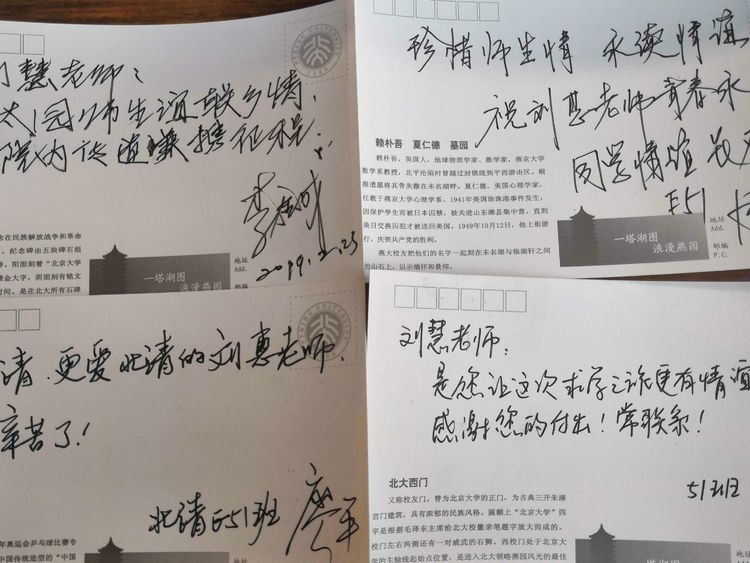 慧老师：
师生谊联乡情，
2019.2.23
念在民族解放战争和革命
纪念碑由五块碑石组
阳面刻着“北京大学
清金大学，阴面刻有铭文
时间。是在北大所有石碑
一塔湖图
浪漫燕园
地址
Add.
邮编
P. C.
珍惜师生情 永续情谊
祝刘慧老师青春永
同学情谊
E51
赖朴吾 夏仁德 墓园
赖朴吾，英国人，地球物理学家、数学家，燕京大学
数学系教授，北平沦陷时曾越过封锁线到平西游击区。根
据遗愿将其骨灰撒在未名湖畔。夏仁德，美国心理学家，
任教于燕京大学心理学系。1941年美国珍珠港事件发生，
因保护学生而被日本囚禁，被关进山东潍县集中营，直到
美日交换囚犯才被送回美国。1949年10月12日，他上街游
行，庆贺共产党的胜利。
燕大校友把他们的名字一起刻在未名湖与临湖轩之间
的山石上，以示缅怀和景仰。
一塔湖图
浪漫燕园
地址
Add.
邮编
P. C.
清，更爱北清的刘惠老师，
辛苦了！
北清E51班 廖平
年奥运会乒乓球比赛专
中国传统造型的“中国
地址
刘慧老师：
是您让这次求学之旅更有情谊
感谢您的付出！常联系！
51班
北大西门
又称校友门，曾为北京大学的正门，为古典三开朱漆
宫门建筑，具有浓郁的民族风格。匾额上“北京大学”四
字是根据毛泽东主席给北大校徽亲笔题字放大而成的。
校门左右两侧还有一对威武的石狮。西校门处于北京大
学的主轴线起始点位置，是进入北大领略燕园风光的最佳
地址
Add.